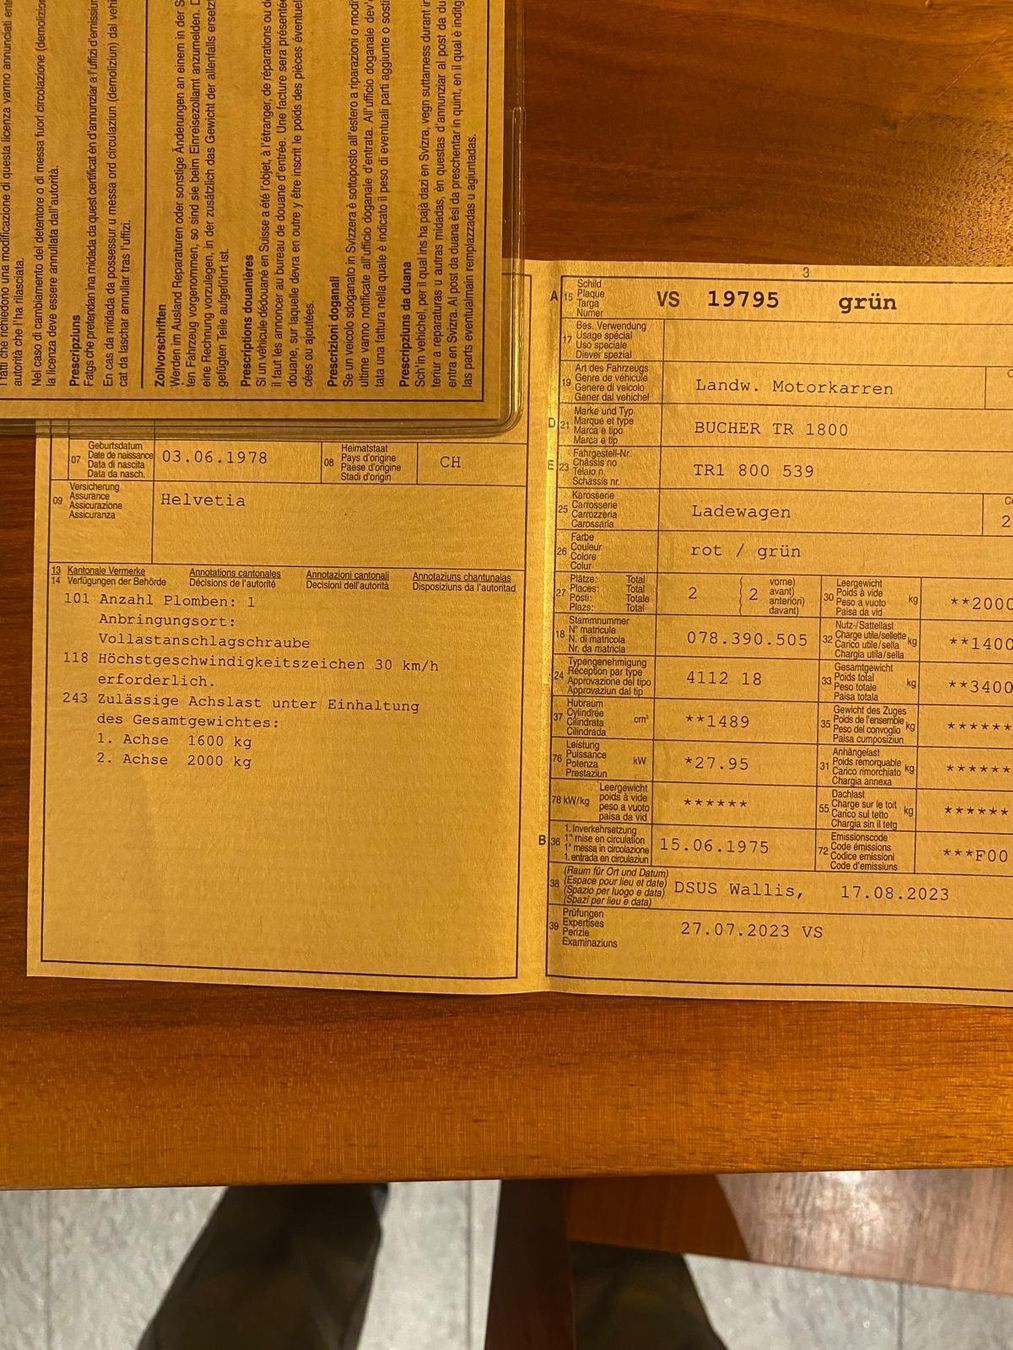 i fatti che richiedono una modificazione di questa licenza vanno annunciati
autorità che l'ha rilasciata.
Nel caso di cambiamento del detentore o di messa fuori circolazione (demolizione
la licenza deve essere annullata dall'autorità.
Prescripziuns
Fatgs che pretendan ina midada da quest certificat èn d'annunziar a l'uffizi d'emissiun
En cas da midada da possessur u messa ord circulaziun (demoliziun) dal vehi
cat da laschar annullar tras l'uffizi.
Zollvorschriften
Werden im Ausland Reparaturen oder sonstige Änderungen an einem in der S
ten Fahrzeug vorgenommen, so sind sie beim Einreisezollamt anzumelden. D
eine Rechnung vorzulegen, in der zusätzlich das Gewicht der allenfalls ersetz
gefügten Teile aufgeführt ist.
Prescriptions douanières
Si un véhicule dédouané en Suisse a été l'objet, à l'étranger, de réparations ou de
il faut les annoncer au bureau de douane d'entrée. Une facture sera présentée
douane, sur laquelle devra en outre y être inscrit le poids des pièces éventuel
cées ou ajoutées.
Prescrizioni doganali
Se un veicolo sdoganato in Svizzera è sottoposto all'estero a riparazioni o modi
ultime vanno notificate all'ufficio doganale d'entrata. All'ufficio doganale dev'
tata una fattura nella quale è indicato il peso di eventuali parti aggiunte o sosti
Prescripziuns da duana
Sch'in vehichel, per il qual ins ha pajà dazi en Svizra, vegn suttamess durant in
teriur a reparaturas u autras midadas, èn questas d'annunziar al post da du
entra en Svizra. Al post da duana èsi da preschentar in quint, en il qual è inditg
las parts eventualmain remplazzadas u agiuntadas.
07 Geburtsdatum
Date de naissance
Data di nascita
Data da nasch.
03.06.1978
08 Heimatstaat
Pays d'origine
Paese d'origine
Stadi d'origin
CH
09 Versicherung
Assurance
Assicurazione
Assicuranza
Helvetia
13 Kantonale Vermerke Annotations cantonales Annotazioni cantonali Annotaziuns chantunalas
14 Verfügungen der Behörde Décisions de l'autorité Decisioni dell'autorità Disposiziuns da l'autoritad
101 Anzahl Plomben: 1
Anbringungsort:
Vollastanschlagschraube
118 Höchstgeschwindigkeitszeichen 30 km/h
erforderlich.
243 Zulässige Achslast unter Einhaltung
des Gesamtgewichtes:
1. Achse 1600 kg
2. Achse 2000 kg
3
A 15 Schild
Plaque
Targa
Numer
VS 19795 grün
17 Bes. Verwendung
Usage spécial
Uso speciale
Diever spezial
19 Art des Fahrzeugs
Genre de véhicule
Genere di veicolo
Gener dal vehichel
Landw. Motorkarren
D 21 Marke und Typ
Marque et type
Marca e tipo
Marca e tip
BUCHER TR 1800
E 23 Fahrgestell-Nr.
Châssis no
Telaio n.
Schassis nr.
TR1 800 539
25 Karosserie
Carrosserie
Carrozzeria
Carossaria
Ladewagen
2
26 Farbe
Couleur
Colore
Colur
rot / grün
27 Plätze: Total
Places: Total
Posti: Totale
Plazs: Total
2 (2 vorne)
avant)
anteriori)
davant)
30 Leergewicht
Poids à vide
Peso a vuoto
Paisa da vid
kg
**2000
18 Stammnummer
N° matricule
N. di matricola
Nr. da matricla
078.390.505
32 Nutz-/Sattellast
Charge utile/sellette
Carico utile/sella
Chargia utila/sella
kg
**1400
24 Typengenehmigung
Réception par type
Approvazione del tipo
Approvaziun dal tip
4112 18
33 Gesamtgewicht
Poids total
Peso totale
Paisa totala
kg
**3400
37 Hubraum
Cylindrée
Cilindrata
Cilindrada
cm³
**1489
35 Gewicht des Zuges
Poids de l'ensemble
Peso del convoglio
Paisa cumposiziun
kg
******
76 Leistung
Puissance
Potenza
Prestaziun
kW
*27.95
31 Anhängelast
Poids remorquable
Carico rimorchiato
Chargia annexa
kg
******
78 kW/kg Leergewicht
poids à vide
peso a vuoto
paisa da vid
******
55 Dachlast
Charge sur le toit
Carico sul tetto
Chargia sin il tetg
kg
******
B 36 1. Inverkehrsetzung
1re mise en circulation
1a messa in circolazione
1. entrada en circulaziun
15.06.1975
72 Emissionscode
Code émissions
Codice emissioni
Code d'emissiuns
***F00
38 (Raum für Ort und Datum)
(Espace pour lieu et date)
(Spazio per luogo e data)
(Spazi per lieu e data)
DSUS Wallis, 17.08.2023
39 Prüfungen
Expertises
Perizie
Examinaziuns
27.07.2023 VS